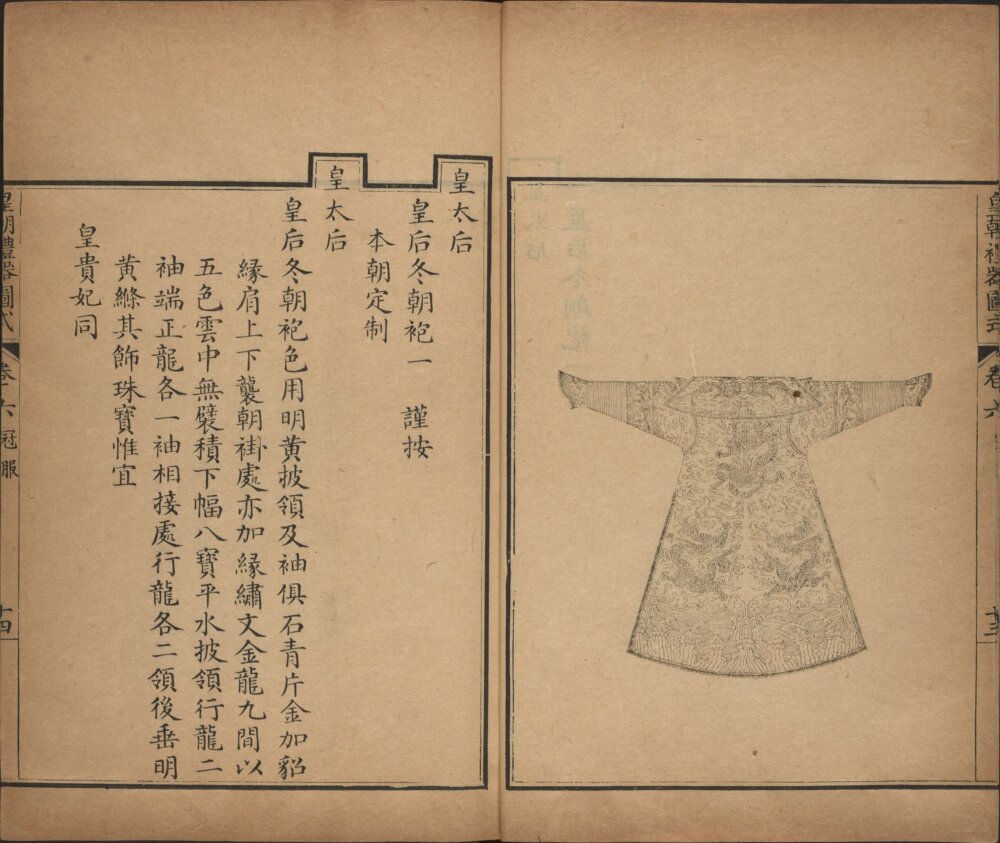 皇朝禮器圖式
卷六
皇太后
皇后冬朝袍一 謹按
本朝定制
皇太后
皇后冬朝袍色用明黃披領及袖俱石青片金加貂
緣肩上下襲朝褂處亦加緣繡文金龍九間以
五色雲中無襞積下幅八寶平水披領行龍二
袖端正龍各一袖相接處行龍各二領後垂明
黃絛其飾珠寶惟宜
皇貴妃同
皇朝禮器圖式 卷六 冠服 十四